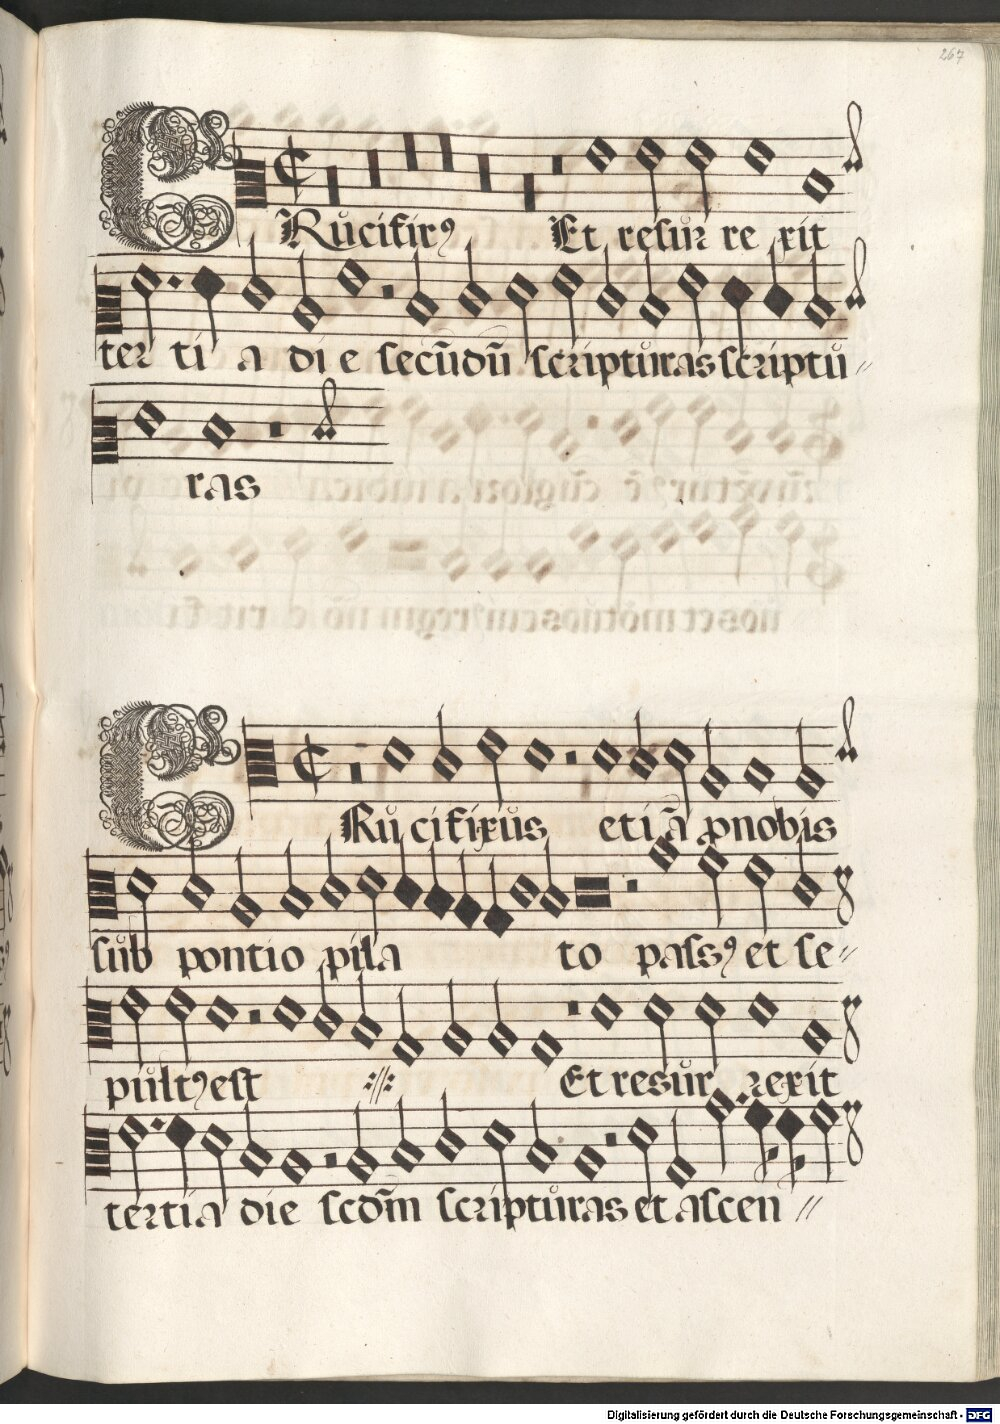 267
CRucifixꝰ Et resur re xit
ter ti a di e secūdū scripturas scriptu
ras
CRucifixus etiā ꝓnobis
sub pontio pila to passꝰ et se
pultꝰ est Et resur rexit
tertia die scdm̄ scripturas et ascen
Digitalisierung gefördert durch die Deutsche Forschungsgemeinschaft - DFG